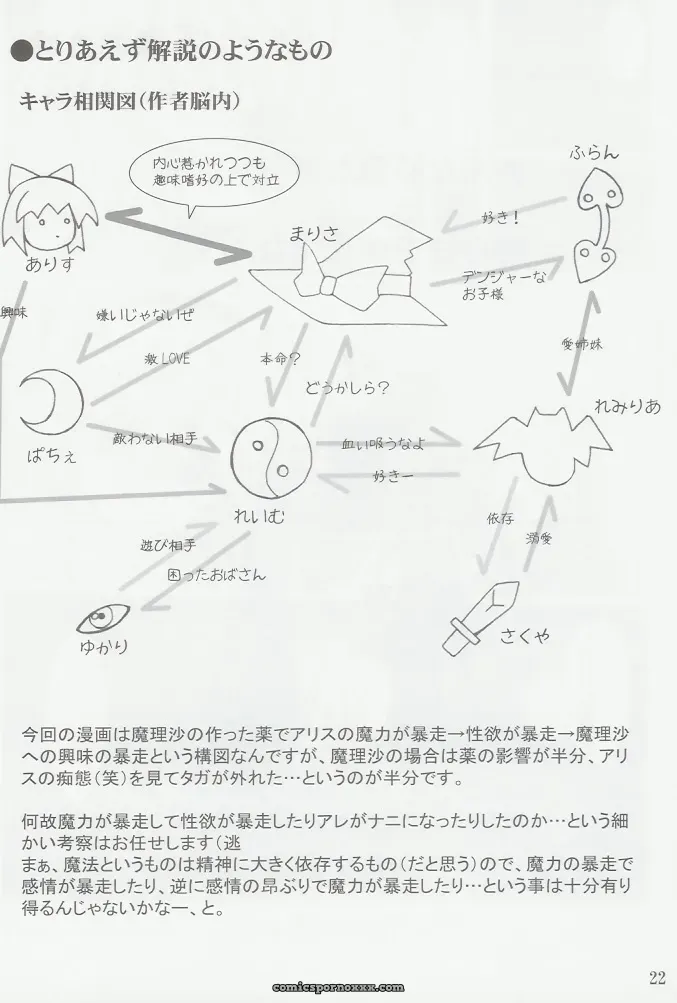 ●とりあえず解説のようなもの
キャラ相関図(作者脳内)
内心惹かれつつも
趣味嗜好の上で対立
ふらん
好き!
まりさ
ありす
デンジャーな
お子様
興味
嫌いじゃないぜ
激LOVE
本命?
どうかしら?
愛姉妹
れみりあ
ぱちぇ
敵わない相手
血い吸うなよ
好きー
れいむ
依存
溺愛
遊び相手
困ったおばさん
ゆかり
さくや
今回の漫画は魔理沙の作った薬でアリスの魔力が暴走→性欲が暴走→魔理沙
への興味の暴走という構図なんですが、魔理沙の場合は薬の影響が半分、アリ
スの痴態(笑)を見てタガが外れた…というのが半分です。
何故魔力が暴走して性欲が暴走したりアレがナニになったりしたのか…という細
かい考察はお任せします(逃
まぁ、魔法というものは精神に大きく依存するもの(だと思う)ので、魔力の暴走で
感情が暴走したり、逆に感情の昂ぶりで魔力が暴走したり…という事は十分有り
得るんじゃないかなー、と。
22
comicspornoxxx.com